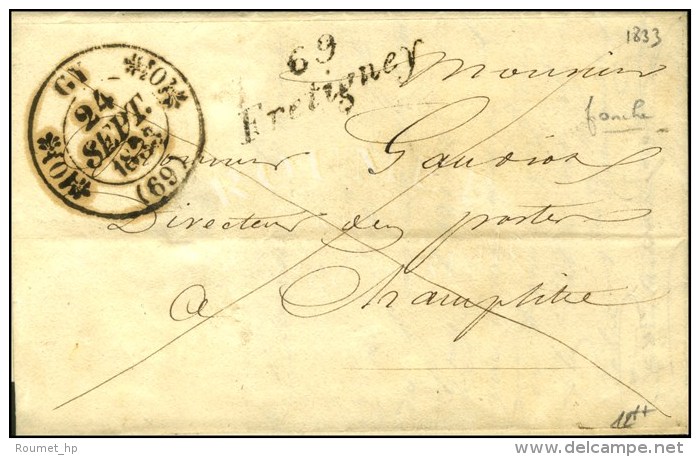 1833
69
Fretigney
GY
24
SEPT.
1833
(69)
Monsieur
Monsieur Gaudios
Directeur des postes
a Champlitte
Roumet_hp
www.delcampe.net